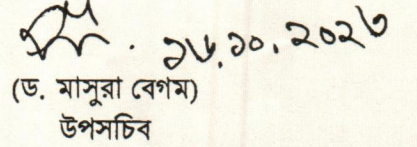 ১৬.১০.২০২৩
(ড. মাসুরা বেগম)
উপসচিব